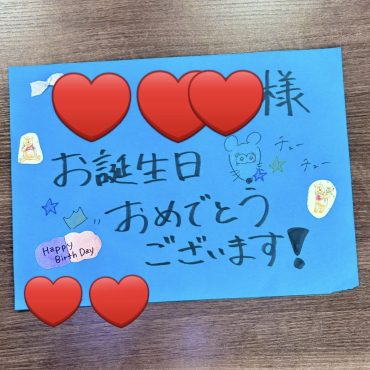 様
お誕生日
チュー
チュー
おめでとう
ございます!
Happy
Birth Day